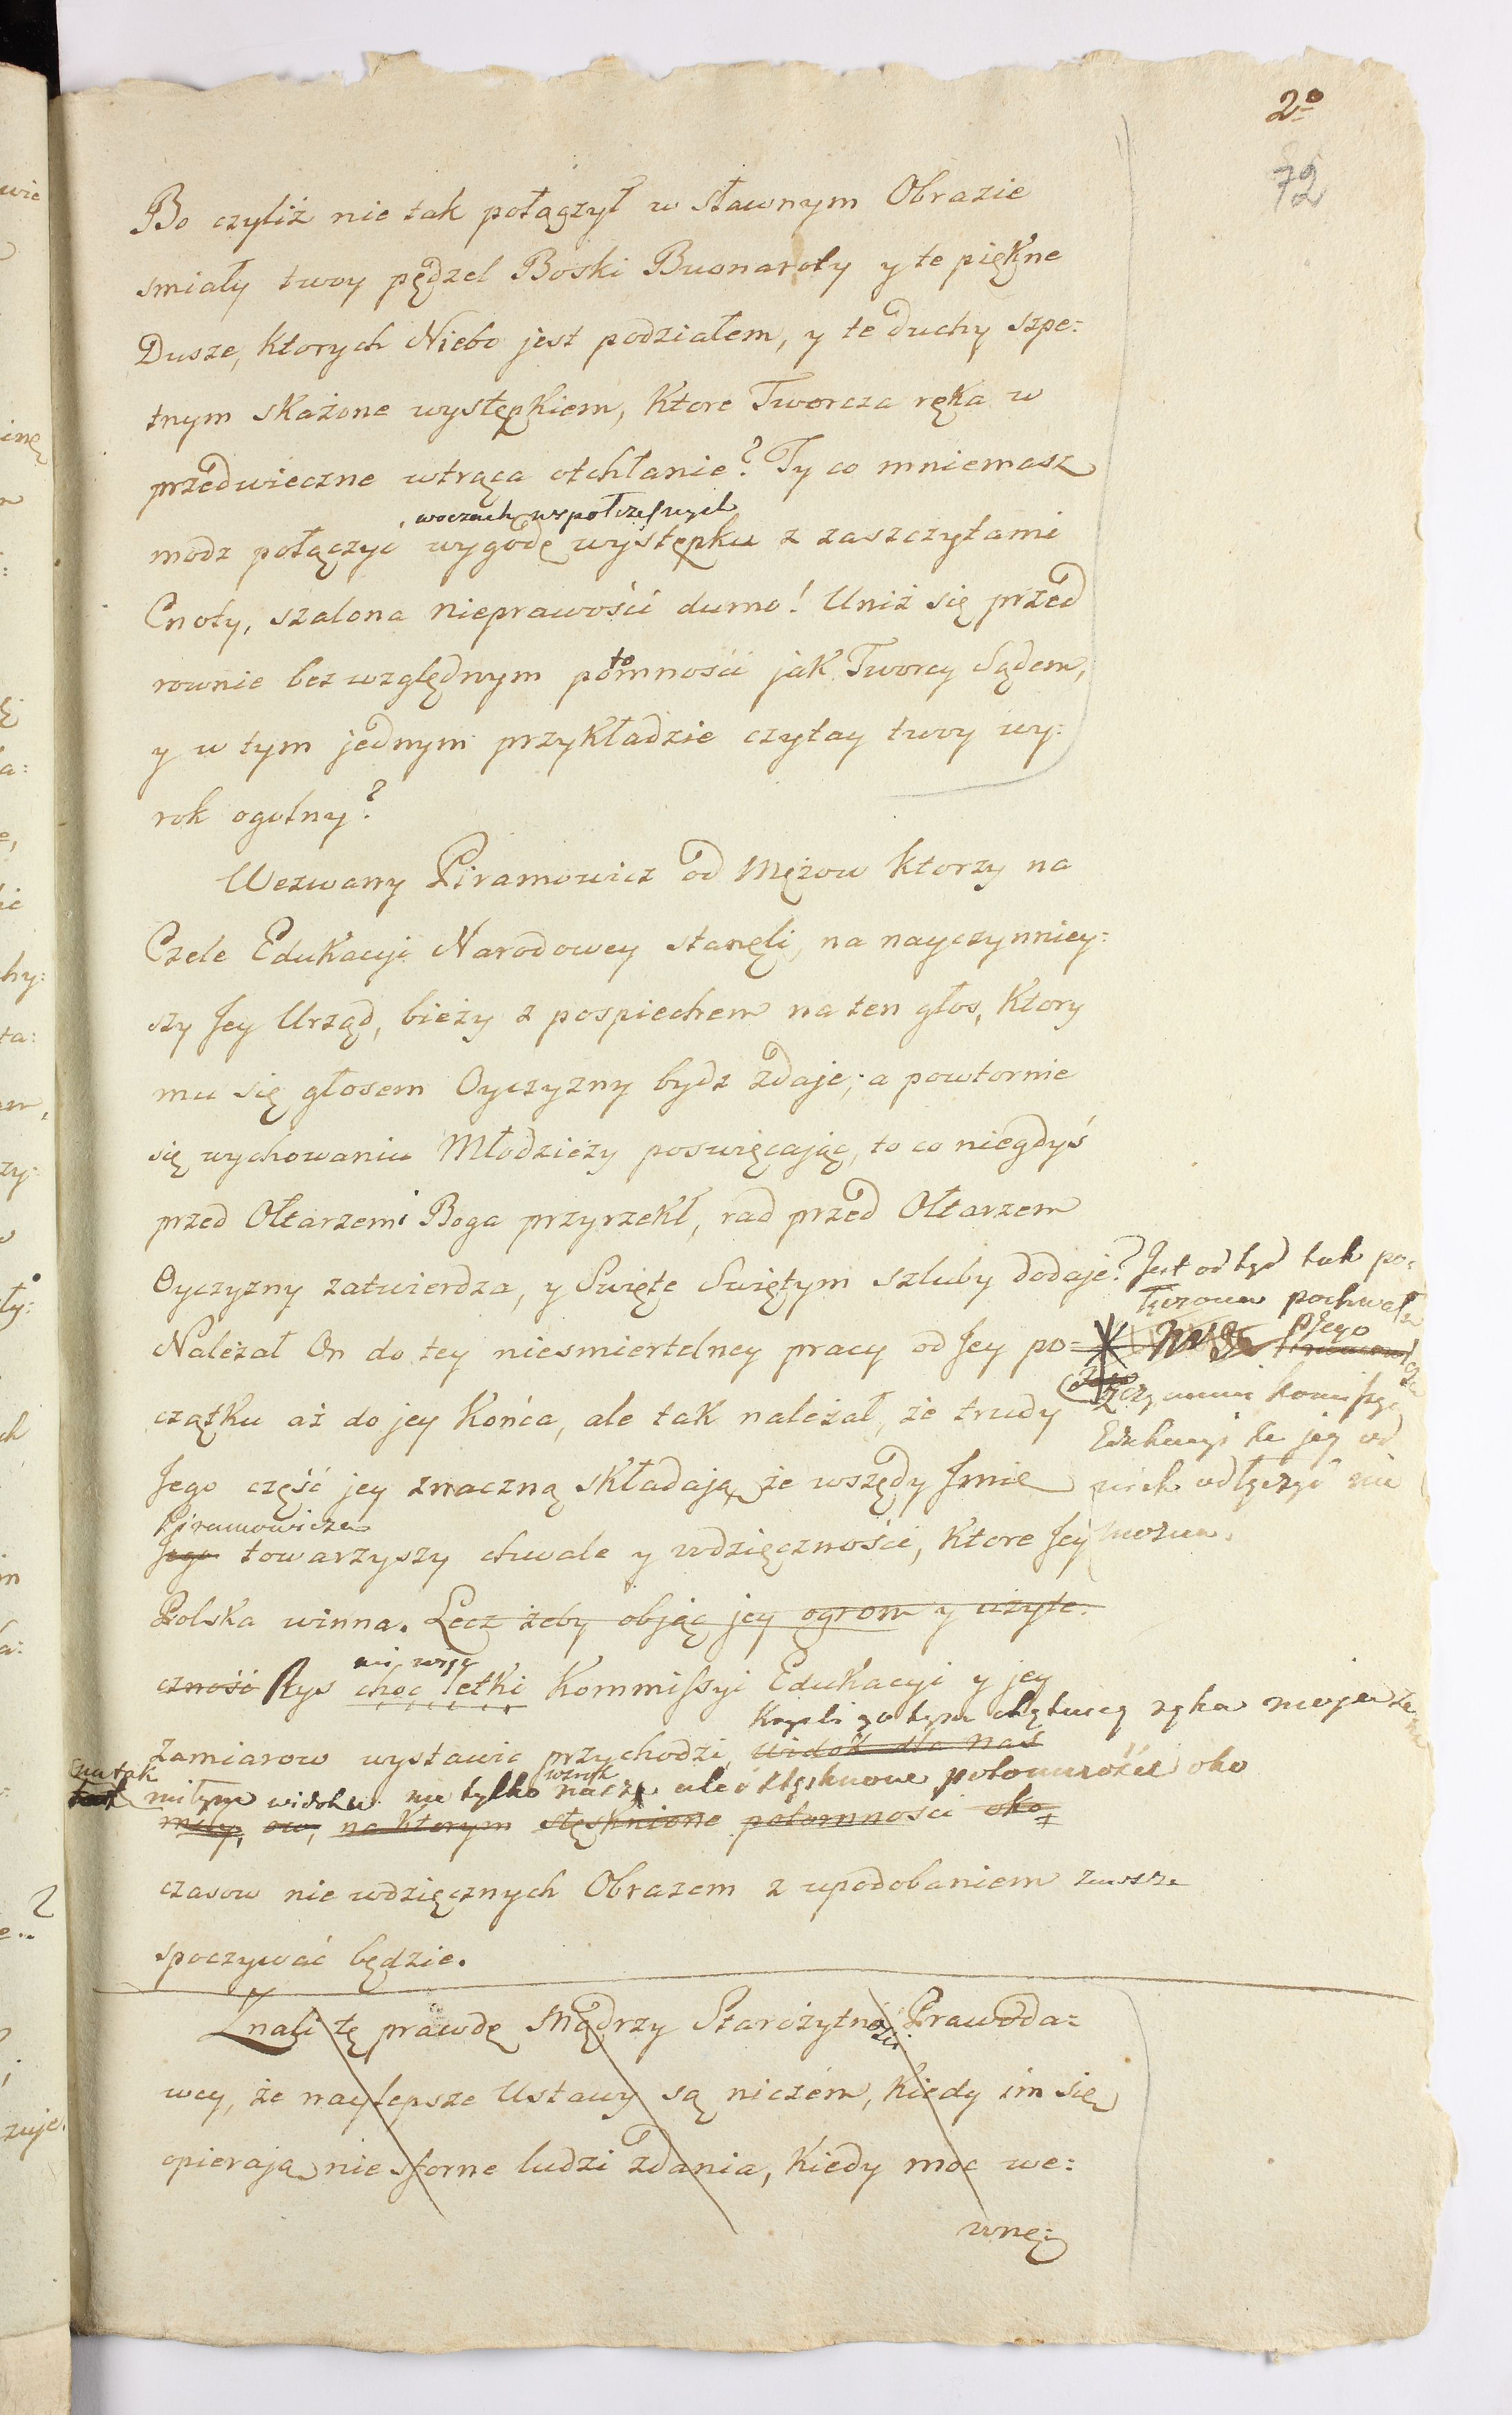 2º
72
Bo czyliż nie tak połączył w sławnym Obrazie
smiały twoy pędzel Boski Buonaroty y te piękne
Dusze, ktorych Niebo jest podziałem, y te duchy szpe=
tnym skażone występkiem, ktore Tworcza ręka w
przedwieczne wtrąca otchłanie? Ty co mniemasz
w oczach wspołczesnych
modz połączyc wygodę występku z zaszczytami
Cnoty, szalona nieprawości dumo! Uniż się przed
to
rownie bezwzględnym pomności jak Tworcy Sądem,
y w tym jednym przykładzie czytay twoy wy=
rok ogolny?
Wezwany Piramowicz od Mężow ktorzy na
Czele Edukacyi Narodowey stanęli, na nayczynniey=
szy Jey Urząd, bieży z pospiechem na ten głos, ktory
mu się głosem Oyczyzny bydz zdaje; a powtornie
się wychowaniu Młodzieży poswięcając, to co niegdyś
przed Ołtarzem Boga przyrzekł, rad przed Ołtarzem
Oyczyzny zatwierdza, y Swięte Swiętym szluby dodaje?
Jest odtąd tak po=
łączona pochwała
Jego
Należał On do tey niesmiertelney pracy od Jey po=
z czynami Komissyi
czątku aż do jey końca, ale tak należał, że trudy
Edukacyi że jey od
Jego część jey znaczną składają, że wszędy Jmie
nich odłączyć nie
można.
Piramowicza
Jego towarzyszy chwale y wdzięczności, ktore Jey
Polska winna. Lecz żeby objąć jey ogrom y użyte=
mi więc
czność Rys choc letki Kommissyi Edukacyi y jey
Kryśli go tym chętniey ręka moja że
zamiarow wystawic przychodzi, widok dla nas
na tak miłym widoku nie tylko nasz wzrok ale i stęsknione potomności oko
miły, na ktorym stęsknione potomności oko
czasow nie wdzięcznych Obrazem z upodobaniem zawsze
spoczywać będzie.
Znali tę prawdę Mądrzy Starożytności Prawoda=
wcy, że naylepsze Ustawy są niczém, kiedy im się
opierają nie sforne ludzi zdania, kiedy moc we=
wnę=